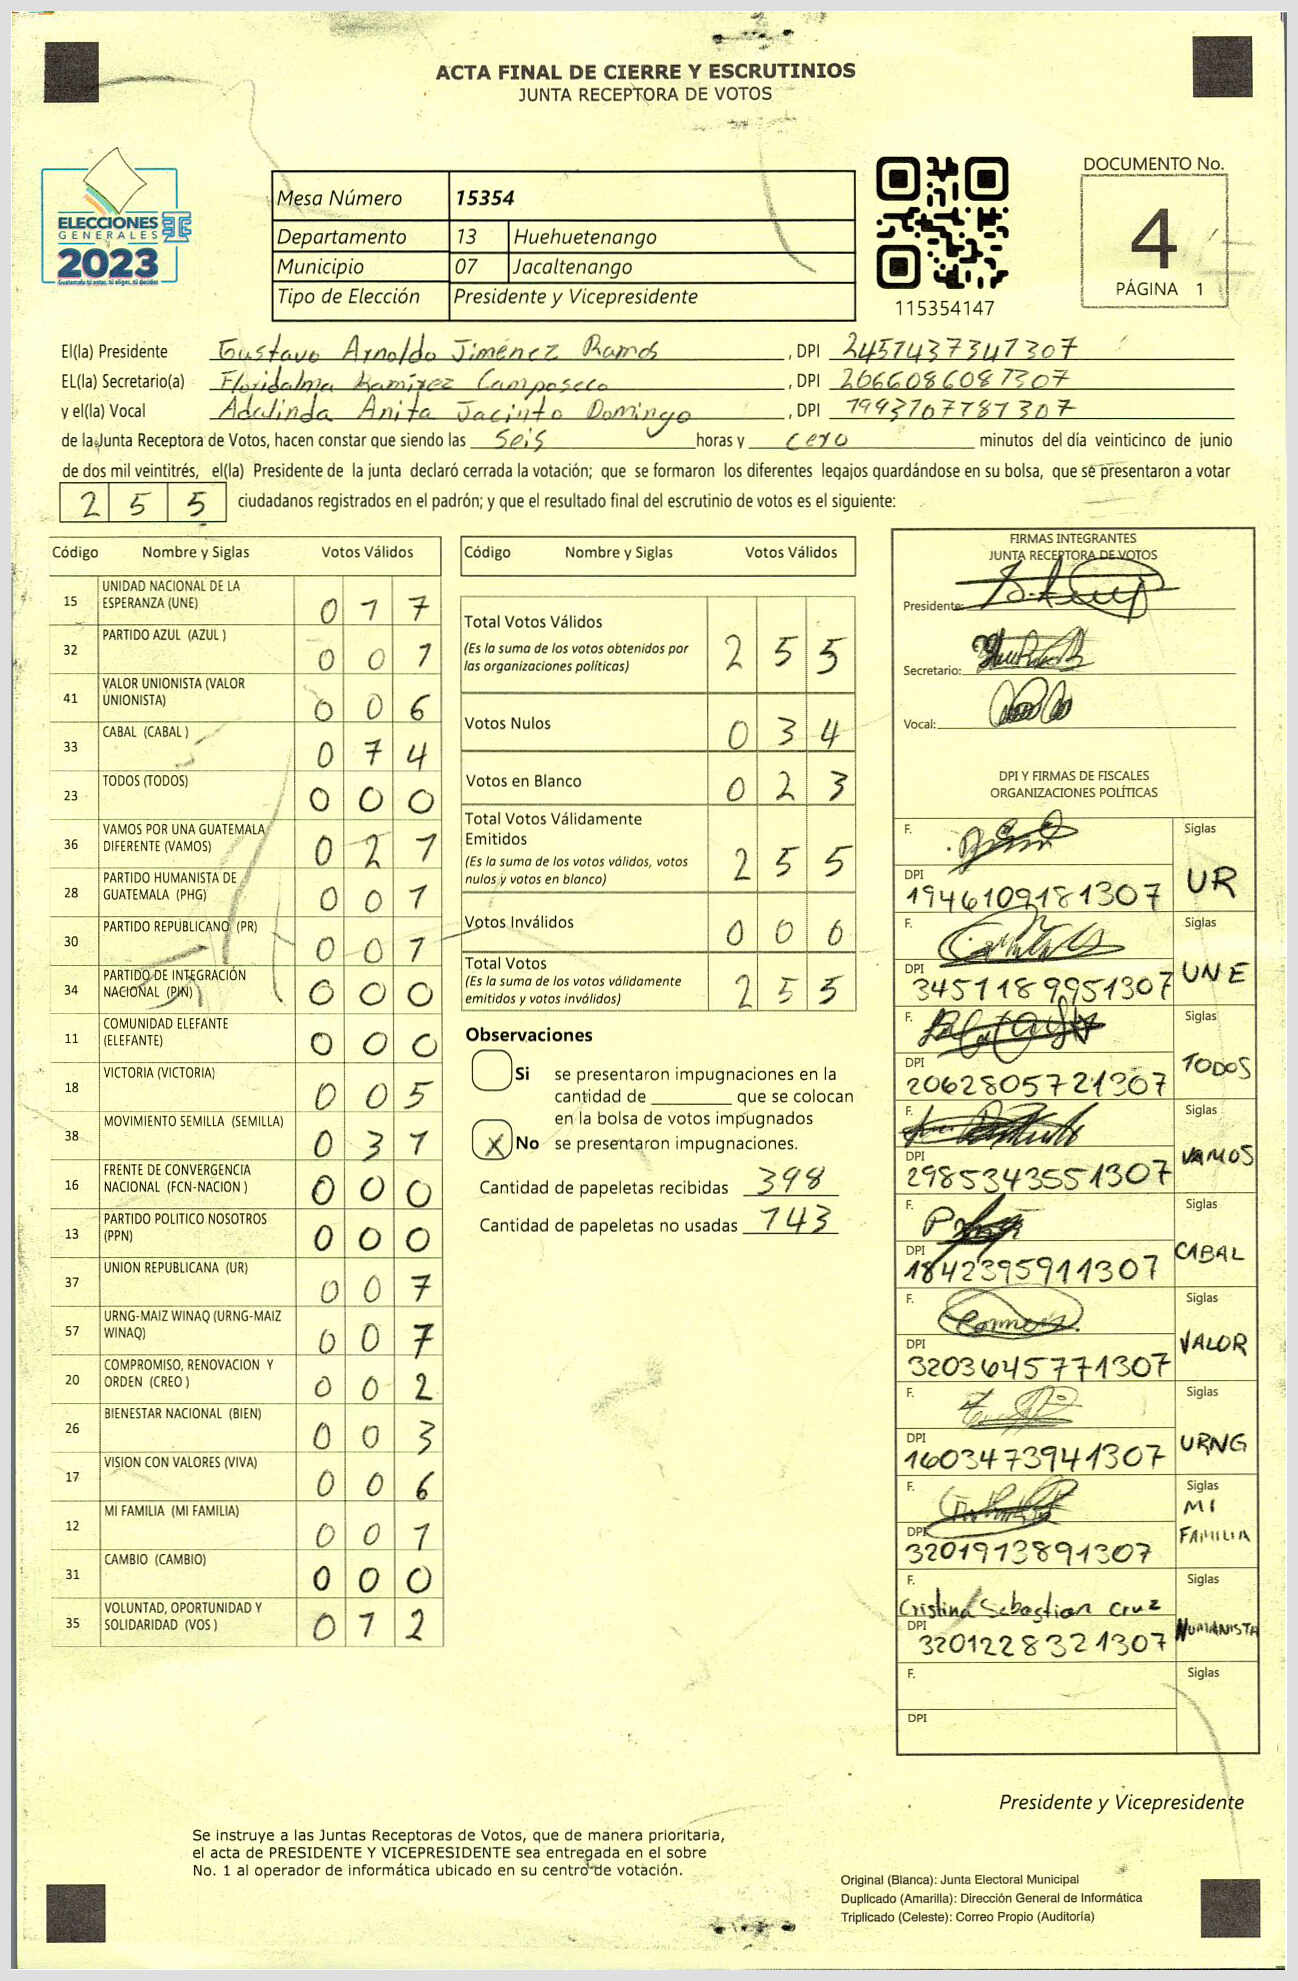 ACTA FINAL DE CIERRE Y ESCRUTINIOS
JUNTA RECEPTORA DE VOTOS
ELECCIONES
GENERALES
2023
Guatemala tú estás, tú eliges, tú decides
Mesa Número 15354
Departamento 13 Huehuetenango
Municipio 07 Jacaltenango
Tipo de Elección Presidente y Vicepresidente
115354147
DOCUMENTO No.
4
PÁGINA 1
El(la) Presidente Gustavo Arnoldo Jiménez Ramos, DPI 2457437347307
EL(la) Secretario(a) Floridalma Ramirez Camposeco, DPI 2066086081307
y el(la) Vocal Adalinda Anita Jacinto Domingo, DPI 1993107781307
de la Junta Receptora de Votos, hacen constar que siendo las seis horas y cero minutos del día veinticinco de junio
de dos mil veintitrés, el(la) Presidente de la junta declaró cerrada la votación; que se formaron los diferentes legajos guardándose en su bolsa, que se presentaron a votar
255 ciudadanos registrados en el padrón; y que el resultado final del escrutinio de votos es el siguiente:
Código Nombre y Siglas Votos Válidos
15 UNIDAD NACIONAL DE LA ESPERANZA (UNE) 0 1 7
32 PARTIDO AZUL (AZUL ) 0 0 1
41 VALOR UNIONISTA (VALOR UNIONISTA) 0 0 6
33 CABAL (CABAL ) 0 7 4
23 TODOS (TODOS) 0 0 0
36 VAMOS POR UNA GUATEMALA DIFERENTE (VAMOS) 0 2 1
28 PARTIDO HUMANISTA DE GUATEMALA (PHG) 0 0 1
30 PARTIDO REPUBLICANO (PR) 0 0 1
34 PARTIDO DE INTEGRACIÓN NACIONAL (PIN) 0 0 0
11 COMUNIDAD ELEFANTE (ELEFANTE) 0 0 0
18 VICTORIA (VICTORIA) 0 0 5
38 MOVIMIENTO SEMILLA (SEMILLA) 0 3 1
16 FRENTE DE CONVERGENCIA NACIONAL (FCN-NACION ) 0 0 0
13 PARTIDO POLITICO NOSOTROS (PPN) 0 0 0
37 UNION REPUBLICANA (UR) 0 0 7
57 URNG-MAIZ WINAQ (URNG-MAIZ WINAQ) 0 0 7
20 COMPROMISO, RENOVACION Y ORDEN (CREO ) 0 0 2
26 BIENESTAR NACIONAL (BIEN) 0 0 3
17 VISION CON VALORES (VIVA) 0 0 6
12 MI FAMILIA (MI FAMILIA) 0 0 1
31 CAMBIO (CAMBIO) 0 0 0
35 VOLUNTAD, OPORTUNIDAD Y SOLIDARIDAD (VOS ) 0 1 2
Código Nombre y Siglas Votos Válidos
Total Votos Válidos 2 5 5
(Es la suma de los votos obtenidos por
las organizaciones políticas)
Votos Nulos 0 3 4
Votos en Blanco 0 2 3
Total Votos Válidamente
Emitidos 2 5 5
(Es la suma de los votos válidos, votos
nulos y votos en blanco)
Votos Inválidos 0 0 0
Total Votos 2 5 5
(Es la suma de los votos válidamente
emitidos y votos inválidos)
Observaciones
Si se presentaron impugnaciones en la
cantidad de ________ que se colocan
en la bolsa de votos impugnados
X No se presentaron impugnaciones.
Cantidad de papeletas recibidas 398
Cantidad de papeletas no usadas 143
FIRMAS INTEGRANTES
JUNTA RECEPTORA DE VOTOS
Presidente:
Secretario:
Vocal:
DPI Y FIRMAS DE FISCALES
ORGANIZACIONES POLÍTICAS
F. Siglas
DPI 1946109181307 UR
F. Siglas
DPI 3451189951307 UNE
F. Siglas
DPI 2062805721307 TODOS
F. Siglas
DPI 2985343551307 VAMOS
F. Siglas
DPI 1842395911307 CABAL
F. Siglas
DPI 3203645771307 VALOR
F. Siglas
DPI 1603473941307 URNG
F. Siglas
DPI 3201913891307 MI FAMILIA
F. Cristina Sebastian Cruz Siglas
DPI 3201228321307 HUMANISTA
F. Siglas
DPI
Presidente y Vicepresidente
Se instruye a las Juntas Receptoras de Votos, que de manera prioritaria,
el acta de PRESIDENTE Y VICEPRESIDENTE sea entregada en el sobre
No. 1 al operador de informática ubicado en su centro de votación.
Original (Blanca): Junta Electoral Municipal
Duplicado (Amarilla): Dirección General de Informática
Triplicado (Celeste): Correo Propio (Auditoría)